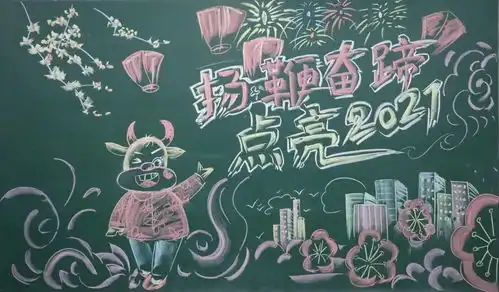 扬鞭奋蹄
点亮2021